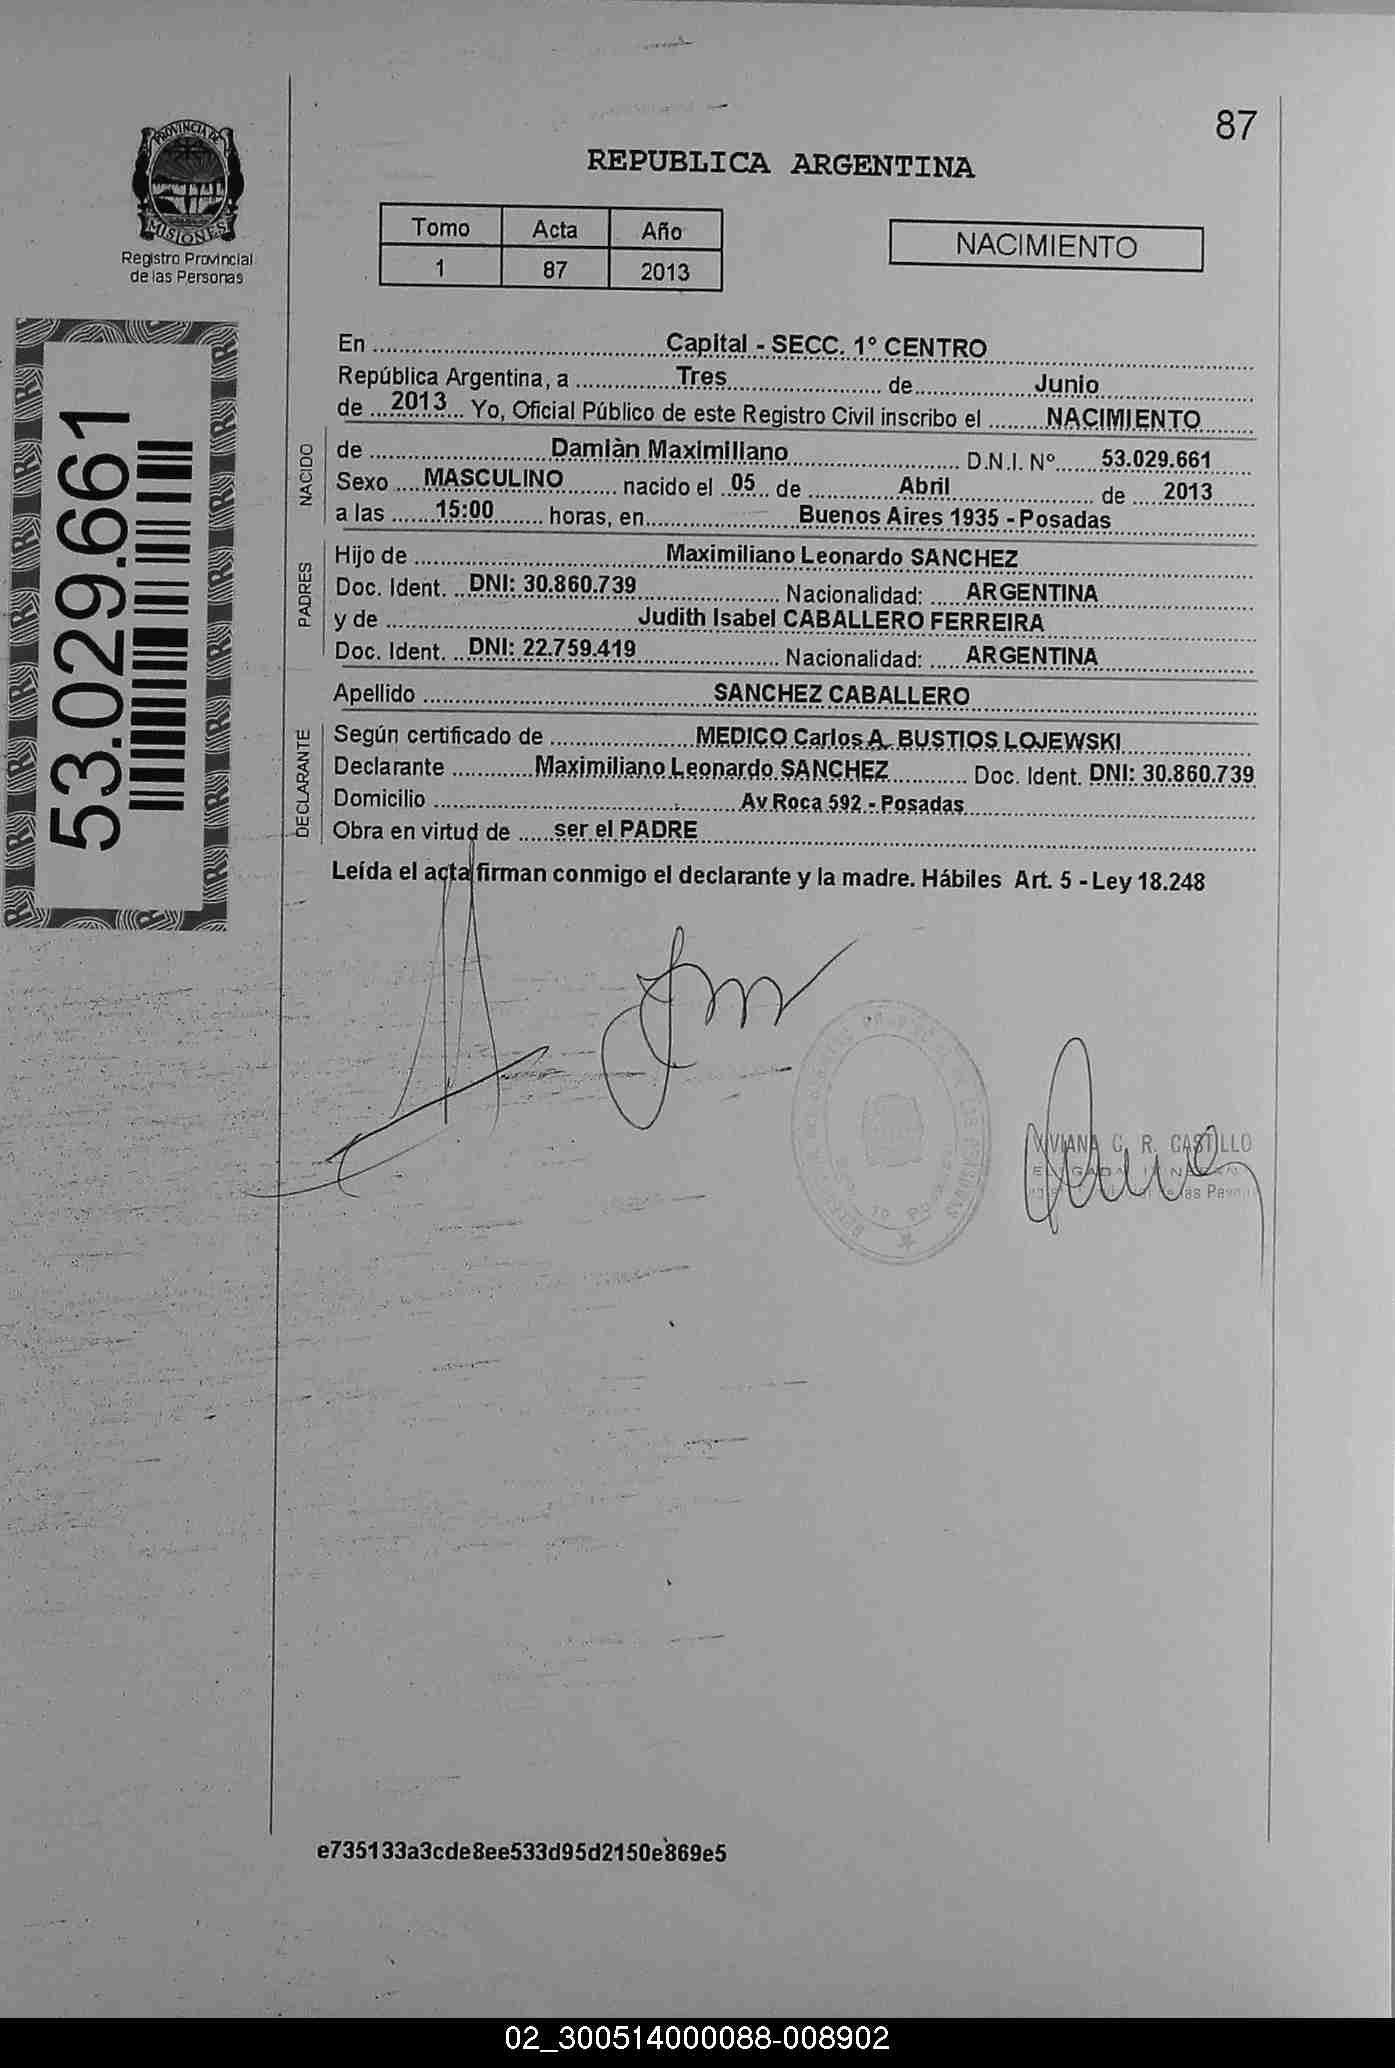 87
PROVINCIA DE
MISIONES
Registro Provincial
de las Personas
REPUBLICA ARGENTINA
Tomo Acta Año
1 87 2013
NACIMIENTO
53.029.661
En Capital - SECC. 1° CENTRO
República Argentina, a Tres de Junio
de 2013 Yo, Oficial Público de este Registro Civil inscribo el NACIMIENTO
NACIDO
de Damiàn Maximiliano D.N.I. N° 53.029.661
Sexo MASCULINO nacido el 05 de Abril de 2013
a las 15:00 horas, en Buenos Aires 1935 - Posadas
PADRES
Hijo de Maximiliano Leonardo SANCHEZ
Doc. Ident. DNI: 30.860.739 Nacionalidad: ARGENTINA
y de Judith Isabel CABALLERO FERREIRA
Doc. Ident. DNI: 22.759.419 Nacionalidad: ARGENTINA
Apellido SANCHEZ CABALLERO
DECLARANTE
Según certificado de MEDICO Carlos A. BUSTIOS LOJEWSKI
Declarante Maximiliano Leonardo SANCHEZ Doc. Ident. DNI: 30.860.739
Domicilio Av Roca 592 - Posadas
Obra en virtud de ser el PADRE
Leída el acta firman conmigo el declarante y la madre. Hábiles Art. 5 - Ley 18.248
VIVIANA C. R. CASTILLO
e735133a3cde8ee533d95d2150e869e5
02_300514000088-008902